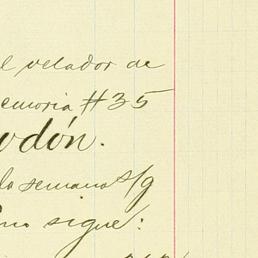 el velador de
emoria #35
odón.
la semana s/g
mo sigue: